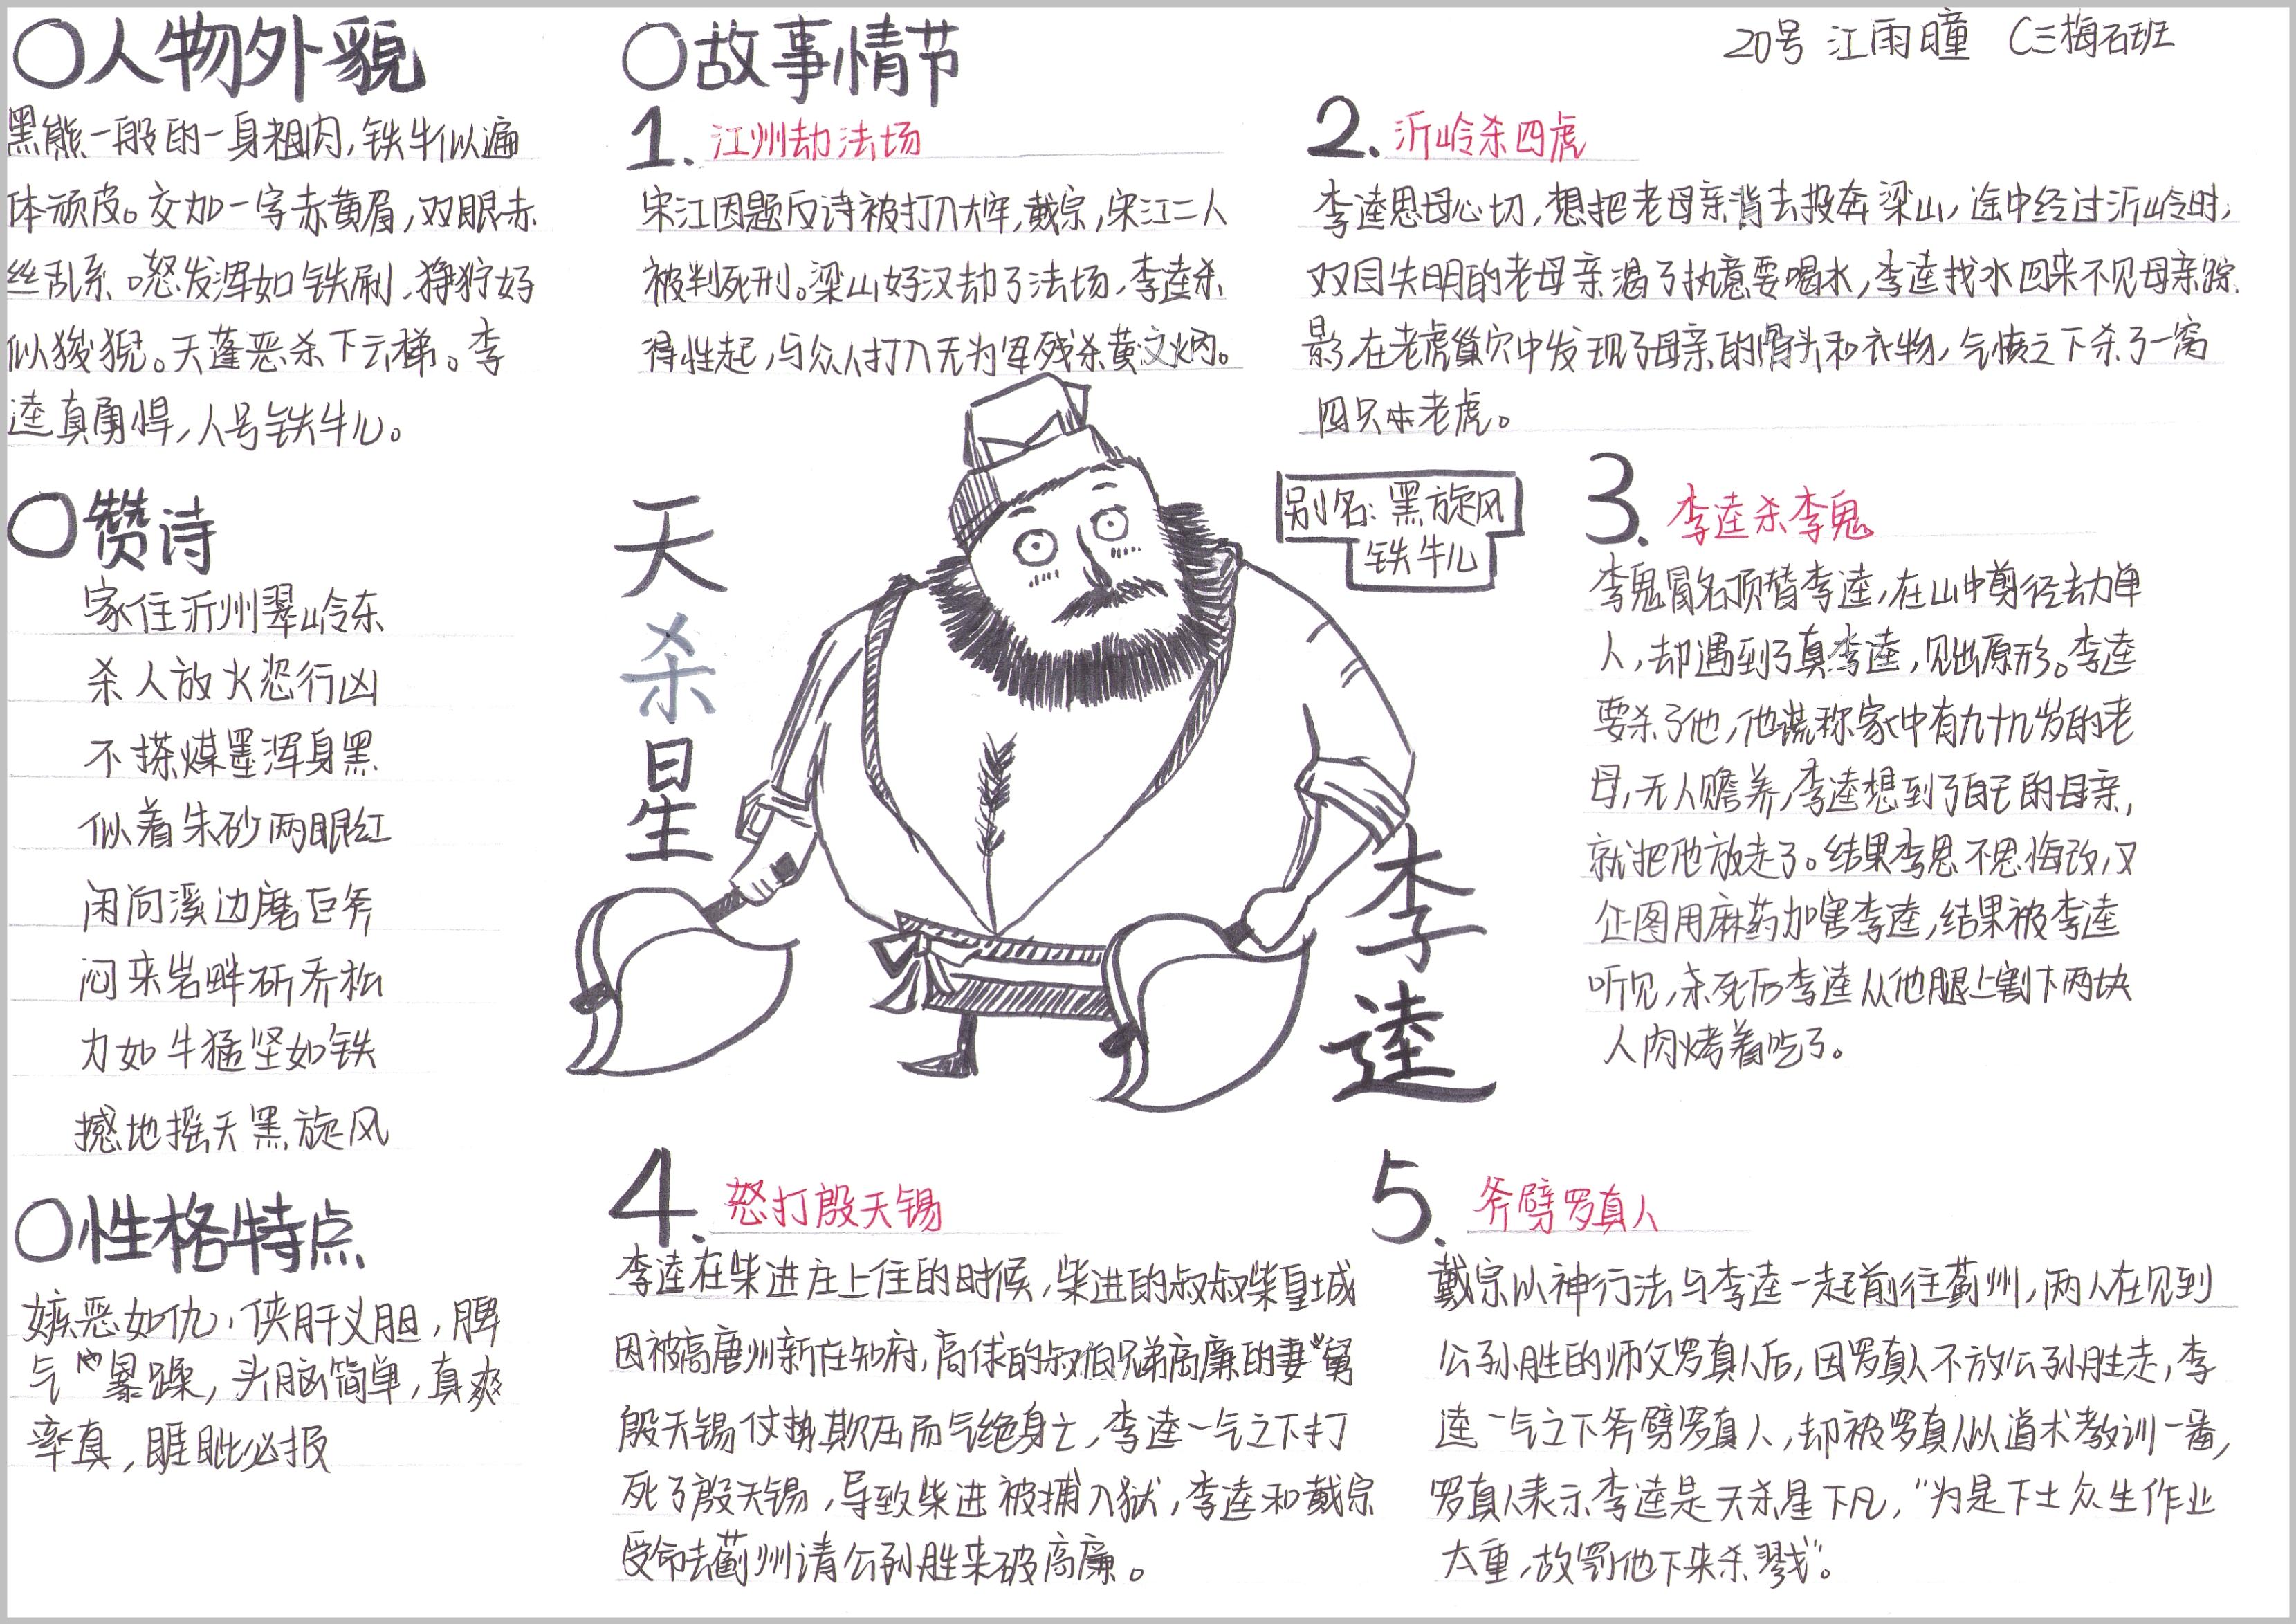 20号 江雨瞳 C三梅石班
〇人物外貌
黑熊一般的一身粗肉,铁牛似遍
体顽皮。交加一字赤黄眉,双眼赤
丝乱系。怒发浑如铁刷,狰狞好
似狻猊。天蓬恶杀下云梯。李
逵真勇悍,人号铁牛儿。
〇赞诗
家住沂州翠岭东
杀人放火恣行凶
不搽煤墨浑身黑
似着朱砂两眼红
闲向溪边磨巨斧
闷来岩畔斫乔松
力如牛猛坚如铁
撼地摇天黑旋风
〇性格特点
嫉恶如仇,侠肝义胆,脾
气 暴躁,头脑简单,真爽
率真,睚眦必报
〇故事情节
1. 江州劫法场
宋江因题反诗被打入大牢,戴宗,宋江二人
被判死刑。梁山好汉劫了法场,李逵杀
得性起,与众人打入无为军残杀黄文炳。
2. 沂岭杀四虎
李逵思母心切,想把老母亲背去投奔梁山,途中经过沂岭时,
双目失明的老母亲渴了执意要喝水,李逵找水回来不见母亲踪
影,在老虎巢穴中发现了母亲的骨头和衣物,气愤之下杀了一窝
四只老虎。
天杀星
别名:黑旋风
铁牛儿
李逵
3. 李逵杀李鬼
李鬼冒名顶替李逵,在山中剪径去力单
人,却遇到了真李逵,见出原形。李逵
要杀了他,他谎称家中有九十九岁的老
母,无人赡养,李逵想到了自己的母亲,
就把他放走了。结果李思不思悔改,又
企图用麻药加害李逵,结果被李逵
听见,杀死后李逵从他腿上割下两块
人肉烤着吃了。
4. 怒打殷天锡
李逵在柴进庄上住的时候,柴进的叔叔柴皇城
因被高唐州新任知府,高俅的叔伯兄弟高廉的妻舅
殷天锡仗势欺压而气绝身亡,李逵一气之下打
死了殷天锡,导致柴进被捕入狱,李逵和戴宗
受命去蓟州请公孙胜来破高廉。
5. 斧劈罗真人
戴宗以神行法与李逵一起前往蓟州,两人在见到
公孙胜的师父罗真人后,因罗真人不放公孙胜走,李
逵一气之下斧劈罗真人,却被罗真人以道术教训一番,
罗真人表示李逵是天杀星下凡,“为是下土众生作业
太重,故罚他下来杀戮”。